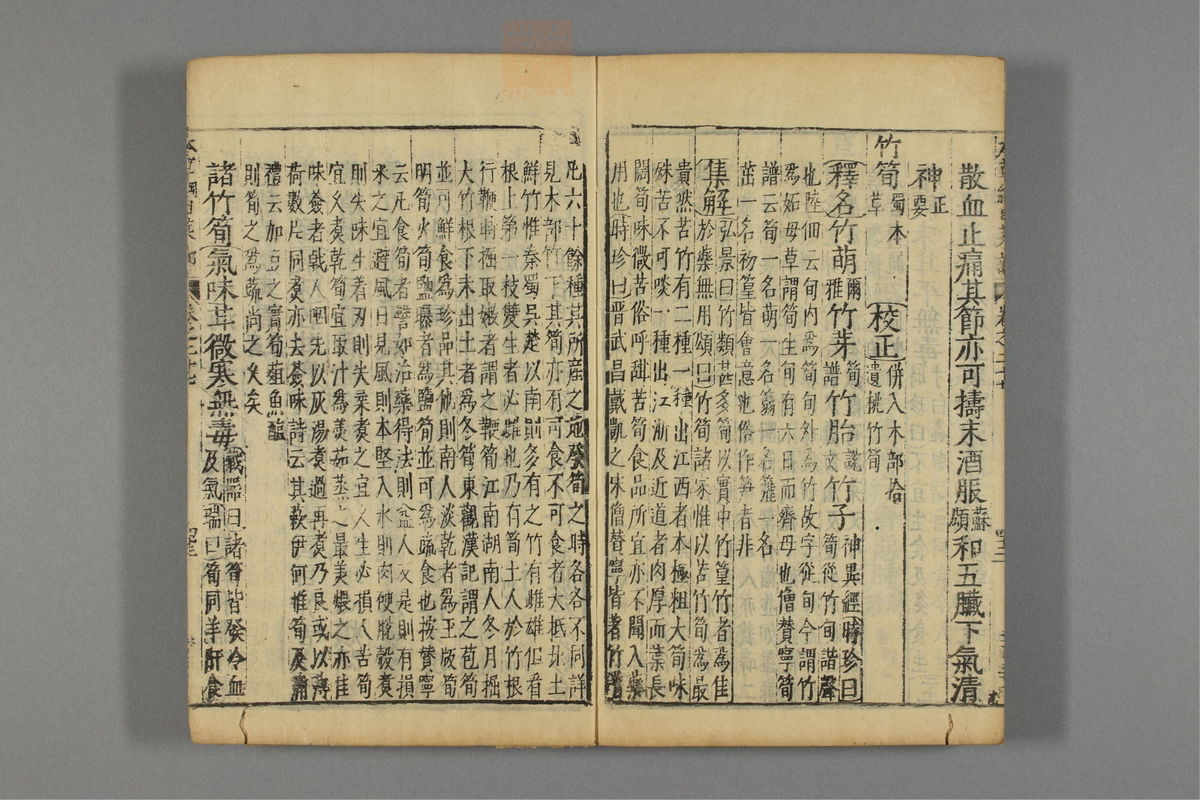 散血止痛其節亦可擣末酒服蘇頌和五臟下氣清
神正要
竹筍蜀本草 校正併入木部拾遺桃竹筍
釋名竹萌爾雅竹芽筍譜竹胎說文竹子神異經時珍曰筍從竹旬諧聲
也陸佃云旬内為筍旬外為竹故字從旬今謂竹
為妬母草謂筍生旬有六日而齊母也僧贊寧筍
譜云筍一名萌一名篛一名䉋一名
茁一名初篁皆會意也俗作笋者非
集解弘景曰竹類甚多筍以實中竹篁竹者為佳
於藥無用頌曰竹筍諸家惟以苦竹筍為最
貴然苦竹有二種一種出江西者本極粗大筍味
殊苦不可啖一種出江浙及近道者肉厚而葉長
闊筍味微苦俗呼甜苦筍食品所宜亦不聞入藥
用也時珍曰晋武昌戴凱之宋僧贊寧皆著竹譜
凡六十餘種其所産之地發筍之時各各不同詳
見木部竹下其筍亦有可食不可食者大抵北土
鮮竹惟秦蜀吳楚以南則多有之竹有雌雄但看
根上第一枝雙生者必雌也乃有筍土人於竹根
行鞭時掘取嫩者謂之鞭筍江南湖南人冬月掘
大竹根下未出土者為冬筍東觀漢記謂之苞筍
並可鮮食為珍品其他則南人淡乾者為玉版筍
明筍火筍鹽曝者為鹽筍並可為蔬食也按贊寧
云凡食筍者譬如治藥得法則益人反是則有損
采之宜避風日見風則本堅入水則肉硬脫殼煮
則失味生著刃則失柔煮之宜久生必損人苦筍
宜久煮乾筍宜取汁為羹茹蒸之最美煨之亦佳
味薟者戟人咽先以灰湯煮過再煮乃良或以薄
荷數片同煮亦去薟味詩云其蔌伊何惟筍及蒲
禮云加豆之實筍菹魚醢
則筍之為蔬尚之矣
諸竹筍氣味甘微寒無毒藏器曰諸筍皆發冷血及氣瑞曰筍同羊肝食